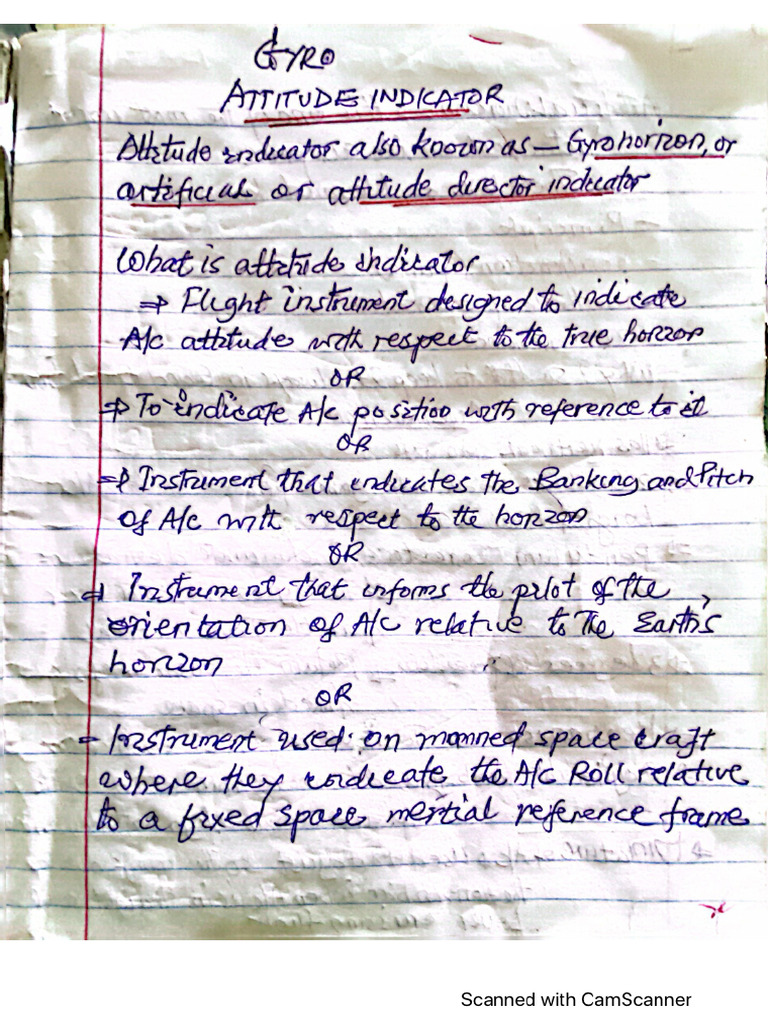 GYRO
ATTITUDE INDICATOR
Attitude indicator also known as — Gyrohorizon, or
artificial or attitude director indicator
What is attitude indicator
⇒ Flight instrument designed to indicate
A/c attitude with respect to the true horizon
OR
⇒ To indicate A/c position with reference to it
OR
⇒ Instrument that indicates the Banking and Pitch
of A/c with respect to the horizon
OR
⇒ Instrument that informs the pilot of the
orientation of A/c relative to The Earth's
horizon
OR
- Instrument used on manned space craft
where they indicate the A/c Roll relative
to a fixed space inertial reference frame
Scanned with CamScanner